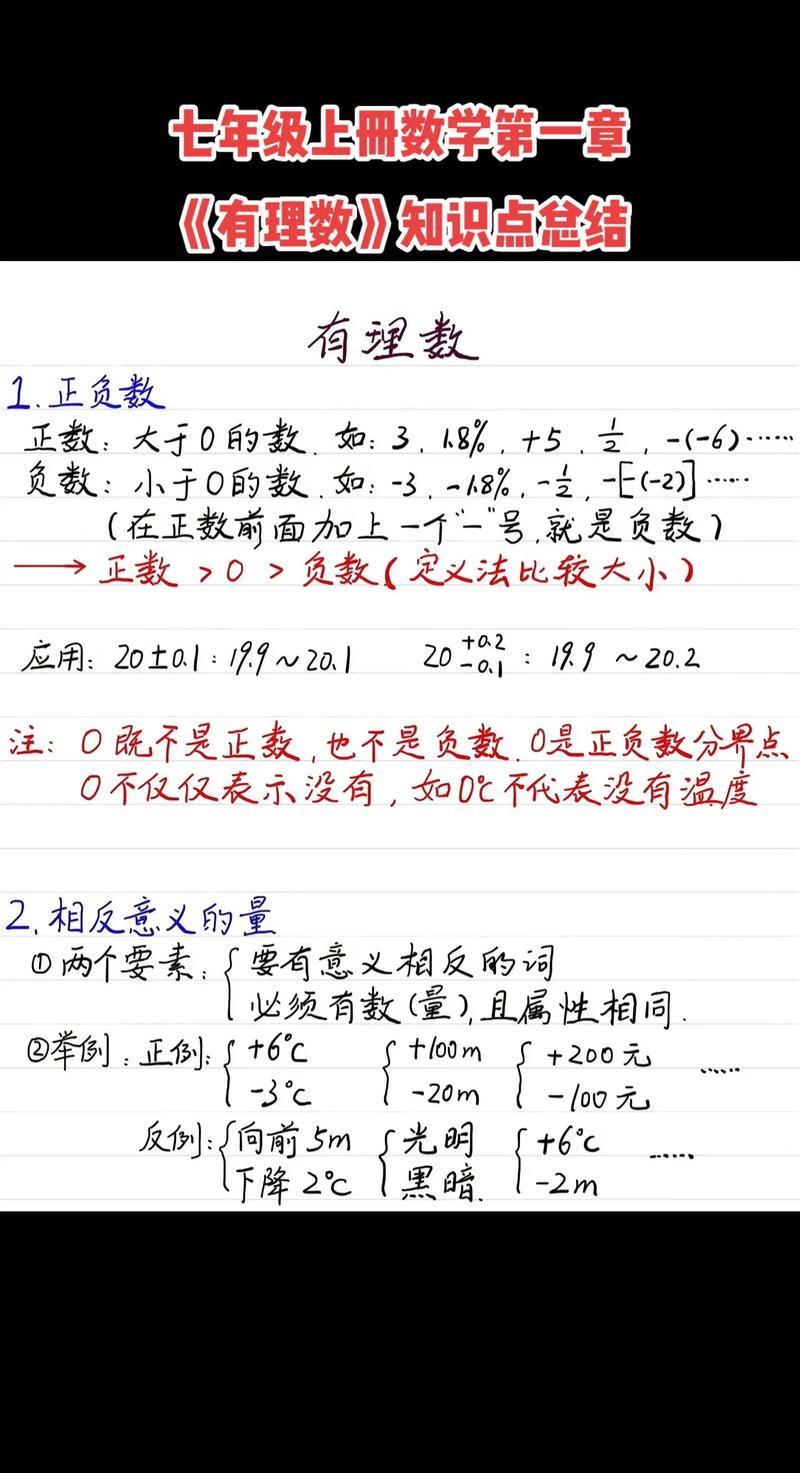 七年级上册数学第一章
《有理数》知识点总结
有理数
1.正负数
正数：大于0的数.如：3、1.8%、+5、1/2、-(-6)……
负数：小于0的数.如：-3、-1.8%、-1/2、-[-(-2)]……
(在正数前面加上一个"-"号,就是负数)
→ 正数 > 0 > 负数(定义法比较大小)
应用：20±0.1：19.9~20.1 20 +0.2 -0.1：19.9 ~20.2
注：0既不是正数,也不是负数.0是正负数分界点
0不仅仅表示没有,如0℃不代表没有温度
2.相反意义的量
①两个要素：{要有意义相反的词
必须有数(量),且属性相同.
②举例：正例：{+6℃ {+100m {+200元 ……
-3℃ -20m -100元
反例：{向前5m {光明 {+6℃ ……
下降2℃ 黑暗. -2m